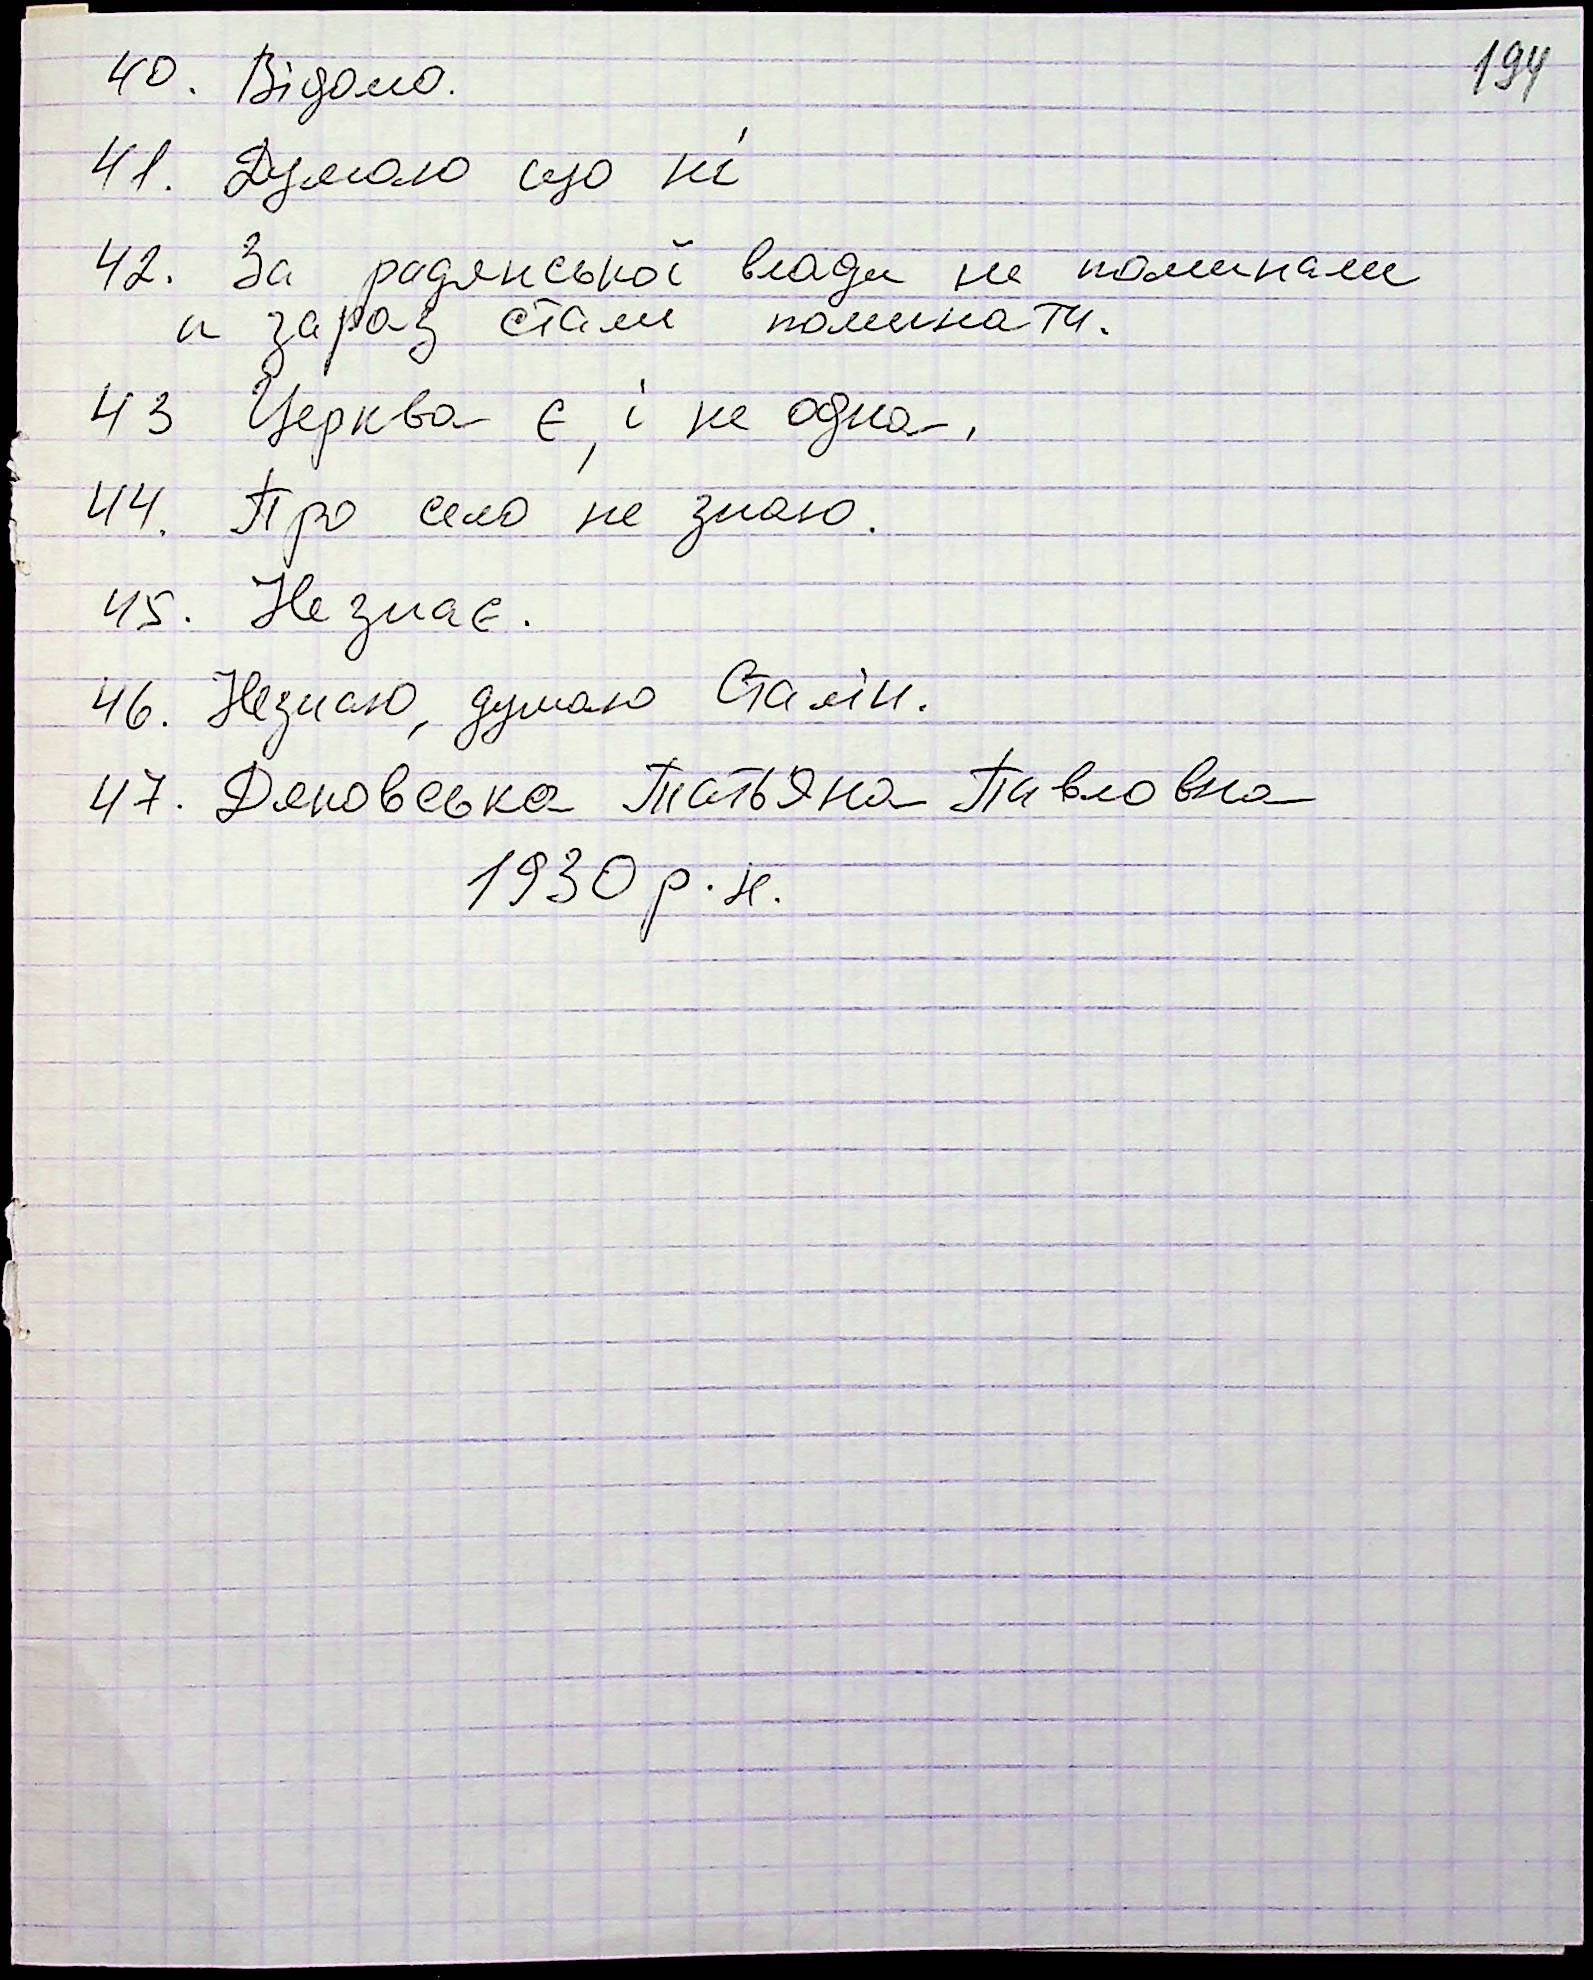 194
40. Відомо.
41. Думаю що ні
42. За радянської влади не поминали
а зараз стали поминати.
43 Церква є, і не одна.
44. Про село не знаю.
45. Не знає.
46. Незнаю, думаю Сталін.
47. Дяковська Татьяна Павловна
1930 р.н.